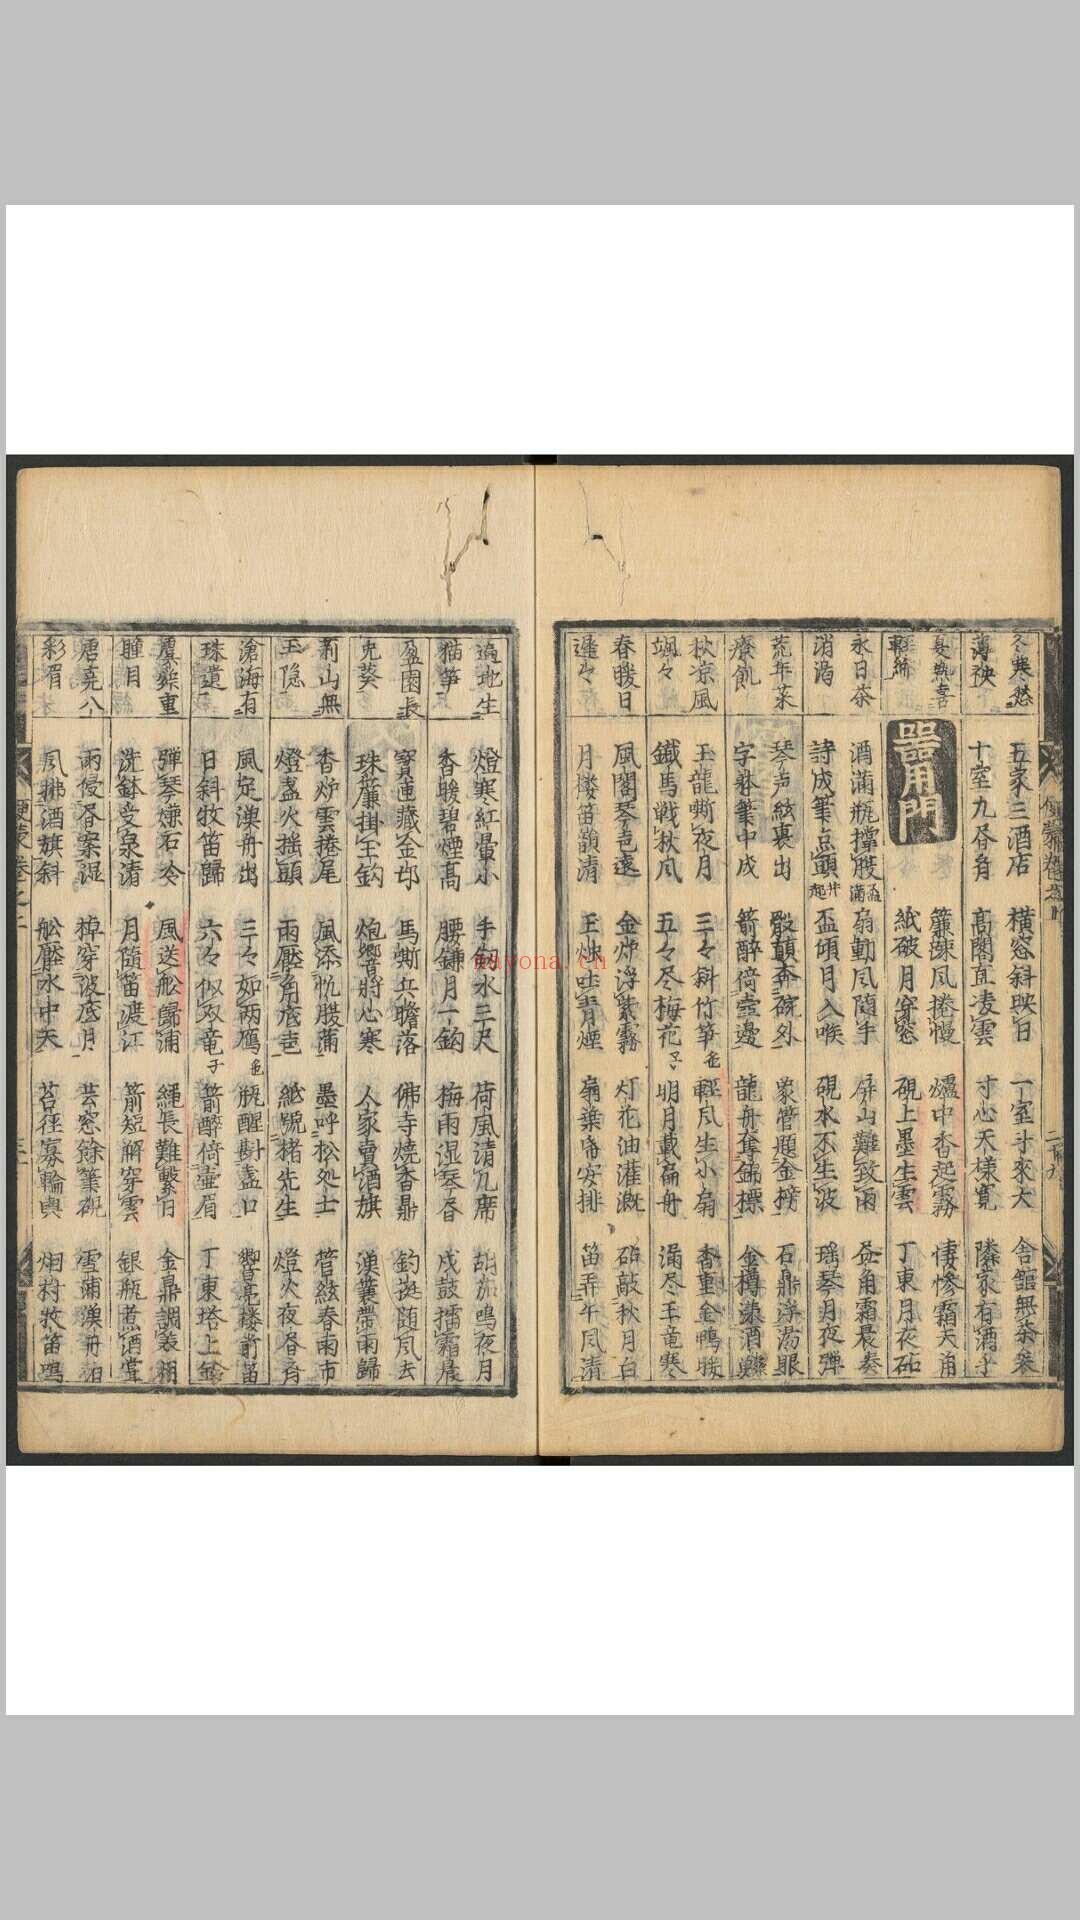 冬寒愁 五家三酒店 橫窓斜映日 一室斗來大 舍舘無茶
薄秧 十室九 高閣直凌雲 寸心天樣寛 隣家有酒
夏熱喜 簾疎風捲慢 爐中香起霧 悽慘霜天角
器用門 紙破月穿窓 硯上墨生雲 丁東月夜砧
永日茶 酒滿瓶撑腹 扇動風隨手 屏山難致雨 角霜晨奏
消渴 詩成筆点頭 盃傾月入喉 硯水不生波 瑶琴月夜彈
荒年菜 琴声絃裏出 骰顛奔碗外 象管題金榜 石鼎浮湯眼
療飢 字 筆中成 箭醉倚壺邊 龍舟奪錦標 金樽漾酒
秋凉風 玉龍嘶夜月 三々斜竹笋 輕风生小扇 香重金鴨
颯々 鐵馬戰秋风 五々尽梅花 明月載扁舟 漏尽玉竜寒
春暖日 風閣琴 遠 金炉浮紫霧 灯花油灌漑 砧敲秋月白
遲々 月楼笛韻清 玉 吐青煙 扇葉 安排 笛弄午风清
過地生 燈寒紅暈小 手 水三尺 荷風清几席 胡笳鳴夜月
猫笋 香暖碧煙髙 腰鎌月一鈎 梅雨湿琴 戍鼓擂霜晨
盈園長 寳 藏金 馬嘶兵膽落 佛寺燒香鼎 釣 随风去
兎葵 珠簾掛玉鈎 炮響將心寒 人家賣酒旗 漁簑帶雨歸
荊山無 香炉雲捲尾 風添帆腹滿 墨呼松処士 管絃春南市
玉隐 燈盞火揺頭 兩壓角 紙號楮先生 燈火夜
滄海有 風定漁舟出 三々如兩鴈 瓶醒斟盞口 響亮楼前笛
珠遺 日斜牧笛歸 六々似双竜 箭醉倚壷眉 丁東塔上
虞舜重 彈琴嫌石冷 風送舩歸浦 繩長難繋日 金鼎調羮
瞳目 洗鉢受泉清 月隨笛渡江 箭短解穿雲 銀瓶煮酒
唐堯八 雨侵 案湿 棹穿波底月 芸窓餘筆硯 雪浦漁舟泊
彩眉 風拂酒旗斜 舩壓水中天 苔徑寡輪輿 烟村牧笛鳴